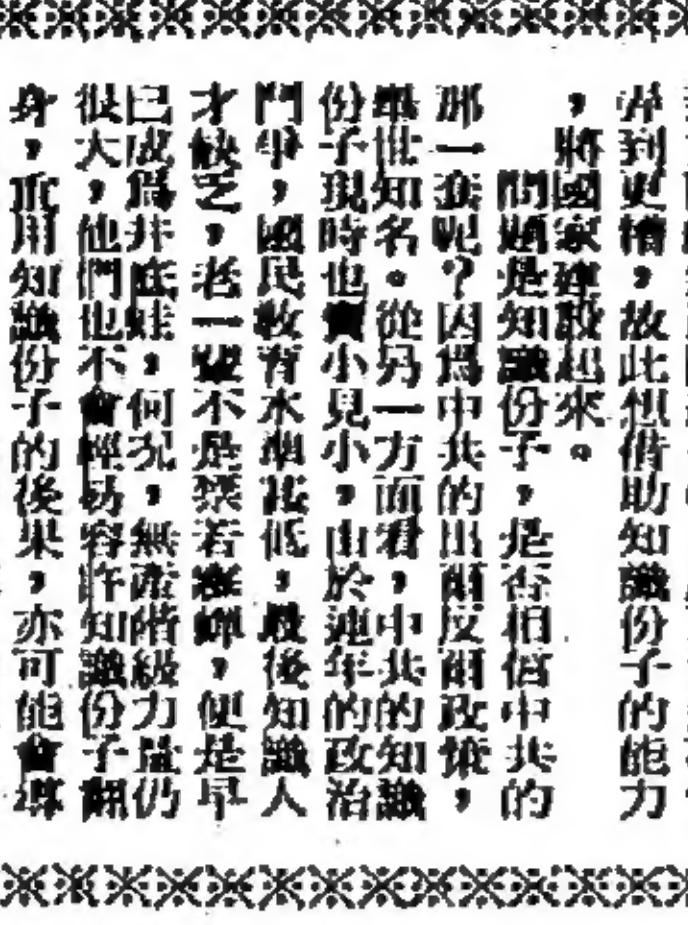 弄到更糟,故此想借助知識份子的能力
,將國家建設起來。
問題是知識份子,是否相信中共的
那一套呢?因爲中共的出爾反爾政策,
舉世知名。從另一方面看,中共的知識
份子現時也實小見小,由於連年的政治
鬥爭,國民敎育水準甚低,最後知識人
才缺乏,老一輩不是禁若寒蟬,便是早
已成爲井底蛙,何况,無產階級力量仍
很大,他們也不會輕易容許知識份子翻
身,重用知識份子的後果,亦可能會導